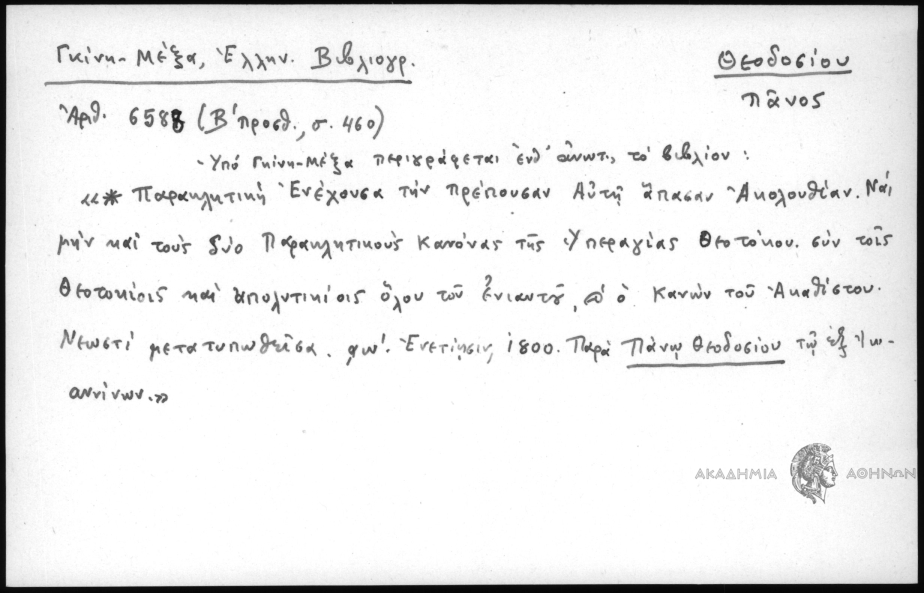 Γκίνη-Μέξα, Ἑλλην. Βιβλιογρ.
Θεοδοσίου
Πᾶνος
Ἀριθ. 6588 (Β΄ προσθ., σ. 460)
-Ὑπό Γκίνη-Μέξα περιγράφεται ἐνθ' ἀνωτ., τό βιβλίον:
«* Παρακλητική Ἐνέχουσα τήν πρέπουσαν Αὐτῇ ἅπασαν Ἀκολουθίαν. Ναί
μήν καί τούς δύο Παρακλητικούς Κανόνας τῆς Ὑπεραγίας Θεοτόκου. σύν τοῖς
Θεοτοκίοις καί ἀπολυτικίοις ὅλου τοῦ ἐνιαυτοῦ, ὁ Κανών τοῦ Ἀκαθίστου.
Νεωστί μετατυπωθεῖσα. ͵αω΄. Ἐνετίησιν, 1800. Παρά Πάνῳ Θεοδοσίου τῷ ἐξ Ἰω-
αννίνων.»
ΑΚΑΔΗΜΙΑ ΑΘΗΝΩΝ